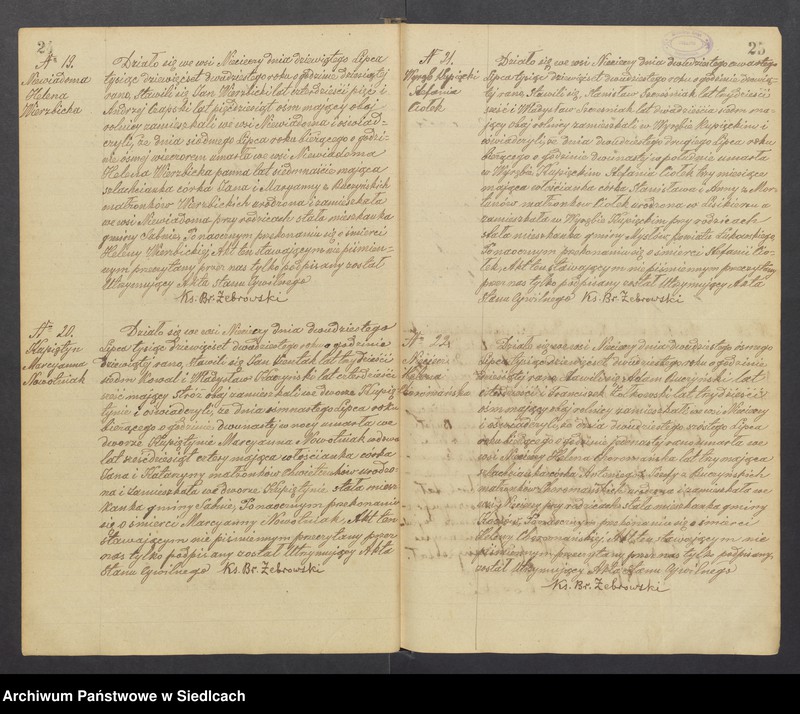 24
Nr 19.
Niewiadoma
Helena
Wierzbicka
Działo się we wsi Nieciecy dnia dziewiątego Lipca
tysiąc dziewięćset dwudziestego roku o godzinie dziesiątej
rano, Stawili się Jan Wierzbicki lat czterdzieści pięć i
Andrzej Czapski lat pięćdziesiąt osm mający obaj
rolnicy zamieszkali we wsi Niewiadoma i oświad-
czyli, że dnia siódmego Lipca roku bieżącego o godzi-
nie ósmej wieczorem umarła we wsi Niewiadoma
Helena Wierzbicka panna lat siedmnaście mająca
szlachcianka córka Jana i Maryanny z Ruczyńskich
małżonków Wierzbickich urodzona i zamieszkała
we wsi Niewiadoma przy rodzicach stała mieszkanka
gminy Sabnie, Po naocznym przekonaniu się o śmierci
Heleny Wierzbickiej Akt ten stawającym nie piśmien-
nym przeczytany przez nas tylko podpisany został
Utrzymujący Akta Stanu Cywilnego
Ks. Br. Żebrowski
Nr 20.
Kupiętyn
Maryanna
Nowotniak
Działo się we wsi Nieciecy dnia dwudziestego
Lipca tysiąc dziewięćset dwudziestego roku o godzinie
dziewiątej rano, stawili się Jan lat trzydzieści
siedm Kowal i Władysław lat czterdzieści
sześć mający Stróż obaj zamieszkali we dworze Kupię-
tynie i oświadczyli, że dnia ośmnastego Lipca roku
bieżącego o godzinie dwunastej w nocy umarła we
dworze Kupiętynie Maryanna Nowotniak wdowa
lat sześćdziesiąt cztery mająca włościanka córka
Jana i Katarzyny małżonków urodzo-
na i zamieszkała we dworze Kupiętynie stała miesz-
kanka gminy Sabnie, Po naocznym przekonaniu
się o śmierci Maryanny Nowotniak, Akt ten
stawającym nie piśmiennym przeczytany przez
nas tylko podpisany został Utrzymujący Akta
Stanu Cywilnego Ks. Br. Żebrowski
25
Nr 21.
Wyrąb Kupięcki
Stefania
Ciołek
Działo się we wsi Nieciecy dnia dwudziestego czwartego
Lipca tysiąc dziewięćset dwudziestego roku o godzinie dziewią-
tej rano, Stawili się, Stanisław lat trzydzieści
sześć i Władysław lat dwadzieścia siedm ma-
jący obaj rolnicy zamieszkali w Wyrębie Kupięckim i
oświadczyli, że dnia dwudziestego drugiego Lipca roku
bieżącego o godzinie dwunastej w południe umarła
w Wyrębie Kupięckim Stefania Ciołek trzy miesiące
mająca włościanka córka Stanisława i Anny z
małżonków Ciołek urodzona w
zamieszkała w Wyrębie Kupięckim przy rodzicach
stała mieszkanka gminy Mysłów powiatu Łukowskiego,
Po naocznym przekonaniu się o śmierci Stefanii Cio-
łek, Akt ten stawającym nie piśmiennym przeczytany
przez nas tylko podpisany został Utrzymujący Akta
Stanu Cywilnego Ks. Br. Żebrowski
Nr 22.
Nieciecz
Helena
Działo się we wsi Nieciecy dnia dwudziestego osmego
Lipca tysiąc dziewięćset dwudziestego roku o godzinie
dziesiątej rano, Stawili się Adam Ruczyński lat
czterdzieści i Franciszek lat trzydzieści
osm mający obaj rolnicy zamieszkali we wsi Nieciecy
i oświadczyli, że dnia dwudziestego szóstego Lipca
roku bieżącego o godzinie jedenastej rano umarła we
wsi Nieciecy Helena lat trzy mająca
szlachcianka córka i Józefy z Ruczyńskich
małżonków urodzona i zamieszkała we
wsi Nieciecy przy rodzicach stała mieszkanka gminy
Po naocznym przekonaniu się o śmierci
Heleny Akt ten stawającym nie
piśmiennym przeczytany przez nas tylko podpisany
został Utrzymujący Akta Stanu Cywilnego
Ks. Br. Żebrowski
Archiwum Państwowe w Siedlcach